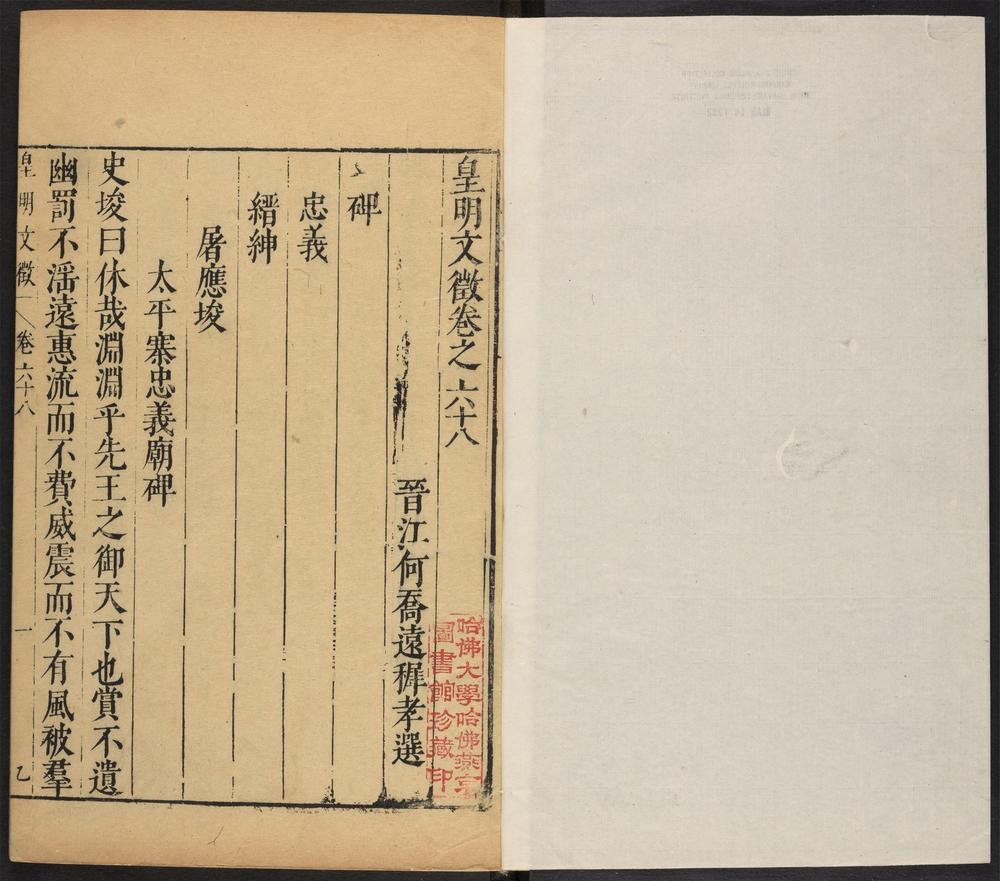 皇明文徵卷之六十八
晉江何喬遠穉孝選
碑
忠義
縉紳
屠應埈
太平寨忠義廟碑
史埈曰休哉淵淵乎先王之御天下也賞不遺
幽罰不滛遠惠流而不費威震而不有風被羣
皇明文徵
卷六十八
一
乙
哈佛大學哈佛燕京
圖書館珍藏印